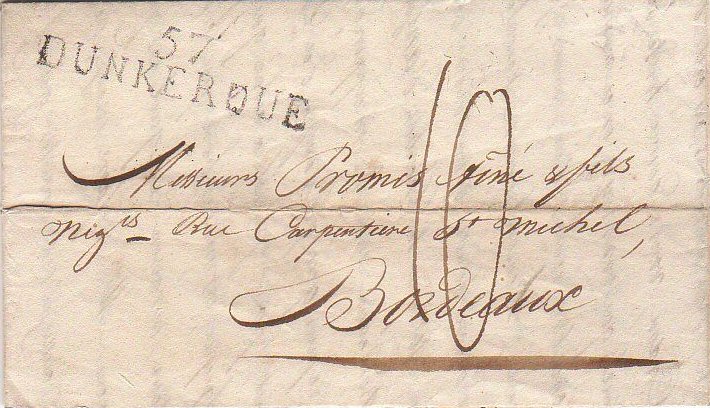 57
DUNKERQUE
10
Messieurs Promis Aîné & fils
Nég.ts Rue Carpentiere St Michel,
Bordeaux